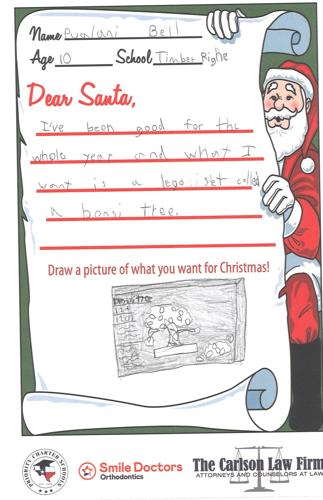 Name Pualani Bell
Age 10 School Timber Ridge
Dear Santa,
I've been good for the
whole year and what I
want is a lego set called
a bonsi tree.
Draw a picture of what you want for Christmas!
PRIORITY CHARTER SCHOOLS
Smile Doctors
Orthodontics
The Carlson Law Firm
ATTORNEYS AND COUNSELORS AT LAW